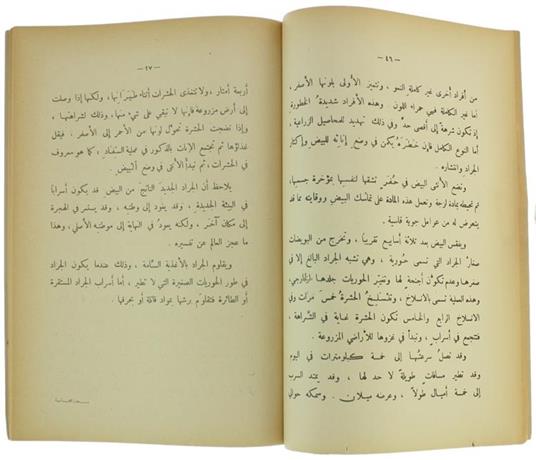 — ٤٦ —
من أفراد أخرى غير كاملة النمو ، وتتميز الأولى بلونها الأصفر ،
أما غير الكاملة فهي حمراء اللون . وهذه الأفراد شديدة الخطورة
إذ تكون شرهة إلى أقصى حد وفي ذلك تهديد للمحاصيل الزراعية ،
أما النوع الكامل فإن خطره يكمن في وضع إناثه للبيض وإكثار
الجراد وانتشاره .
وتضع الأنثى البيض في حفر تشقها لنفسها بمؤخرة جسمها,
ثم تحيطه بمادة لزجة وتعمل هذه المادة على تماسك البيض ووقايته مما قد
يتعرض له من عوامل جوية قاسية .
ويفقس البيض بعد ثلاثة أسابيع تقريباً ، وتخرج من البويضات
صغار الجراد التي تسمى حورية ، وهي تشبه الجراد البالغ إلا في
صغرها وعدم تكون أجنحة لها وتغير الحوريات جلدها الخارجي،
وهذه العملية تسمى بالانسلاخ ، وتنسلخ الحشرة خمس مرات وفي
الانسلاخ الرابع والخامس تكون الحشرة غاية في الشراهة ،
فتتجمع في أسراب ، وتبدأ في غزوها للأراضي المزروعة .
وقد تصل سرعتها إلى خمسة كيلومترات في اليوم
وقد تطير مسافات طويلة لا حد لها ، وقد يمتد السرب
إلى خمسة أميال طولاً ، وعرضه ميلان . وسمكه حوالي
— ٤٧ —
أربعة أمتار ، ولا تتغذى الحشرات أثناء طيرانها، ولكنها إذا وصلت
إلى أرض مزروعة فإنها لا تبقي على شيء منها، وذلك لشراهتها ،
وإذا نضجت الحشرة تحول لونها من الأحمر إلى الأصفر . فيقل
غذاؤها ثم تجتمع الإناث بالذكور في عملية السفاد ، كما هو معروف
في الحشرات ، ثم تبدأ الأنثى في وضع البيض .
يلاحظ أن الجراد الجديد الناتج من البيض قد يكون أسراباً
في البيئة الجديدة ، وقد يعود إلى وطنه ، وقد يستمر في الهجرة
إلى مكان آخر ، ولكنه يعود في النهاية إلى موطنه الأصلي ، وهذا
ما عجز العالم عن تفسيره .
ويقاوم الجراد بالأغذية السامة ، وذلك عندما يكون الجراد
في طور الحوريات الصغيرة التي لا تطير ، أما أسراب الجراد المستقرة
أو الطائرة فتقاوم برشها بمواد قاتلة أو بحرقها .